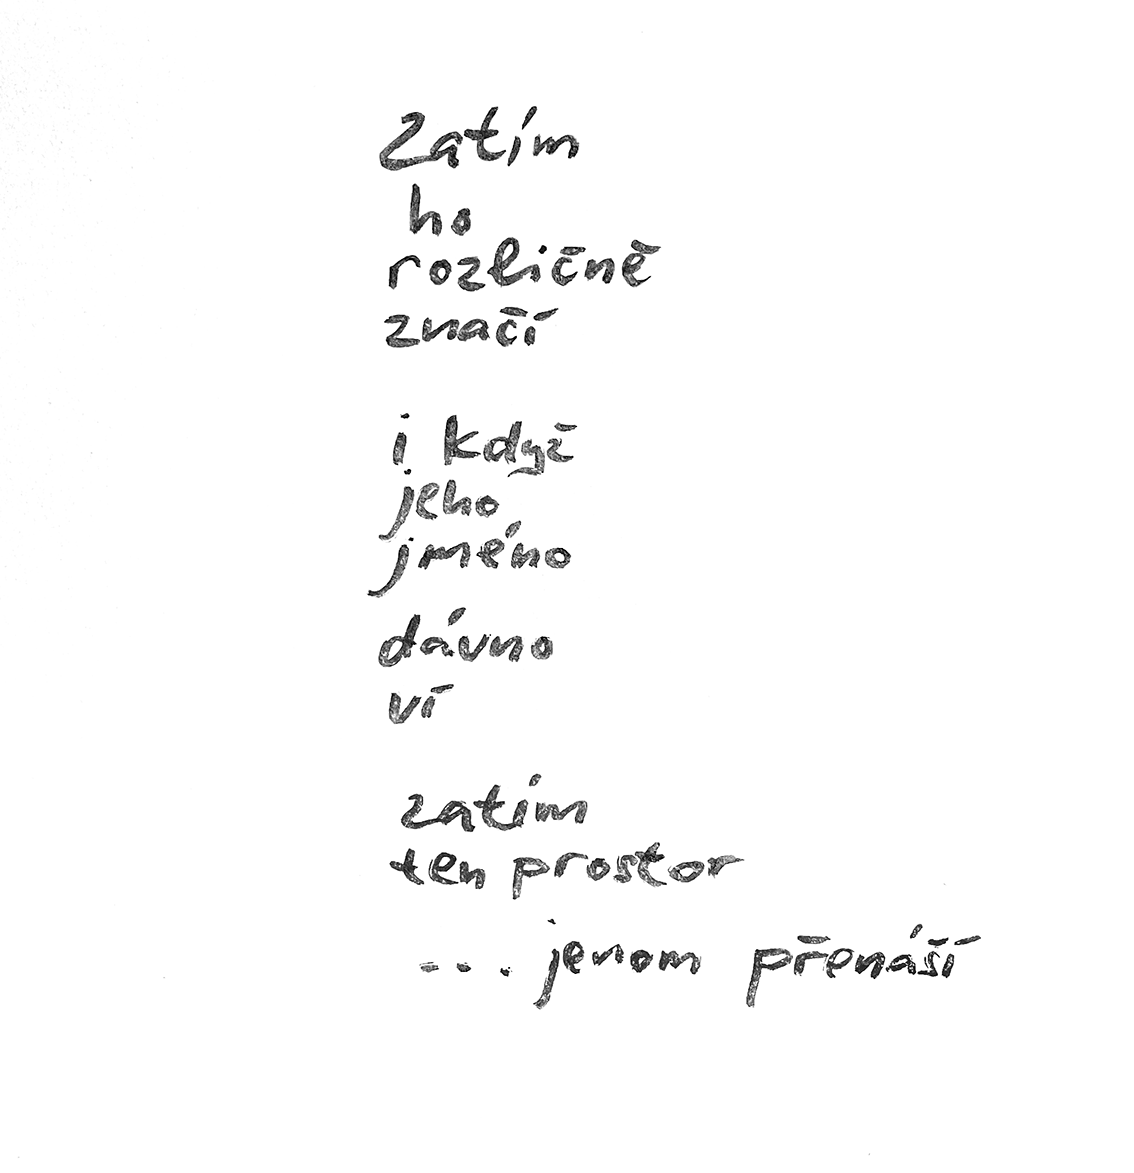 Zatím
ho
rozličně
značí
i když
jeho
jméno
dávno
ví
zatím
ten prostor
... jenom přenáší